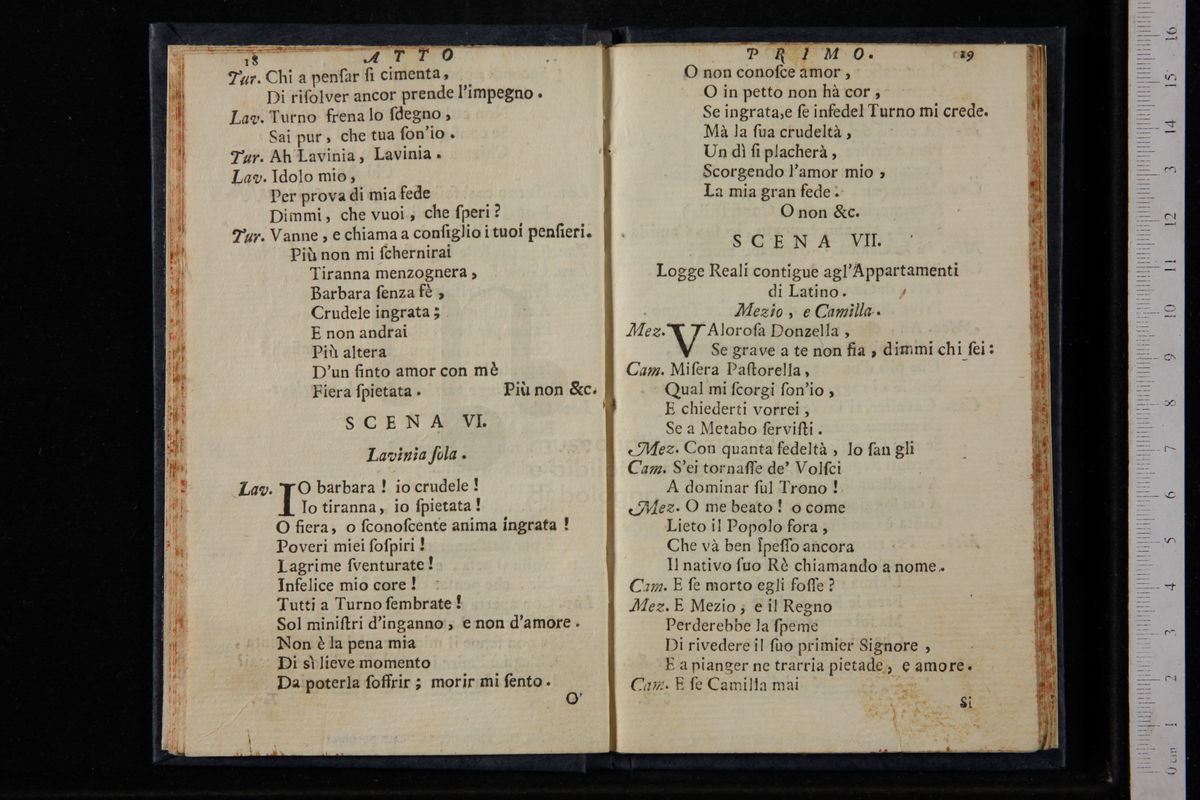 18 ATTO
Tur. Chi a penſar ſi cimenta,
Di riſolver ancor prende l'impegno.
Lav. Turno frena lo ſdegno,
Sai pur, che tua ſon'io.
Tur. Ah Lavinia, Lavinia.
Lav. Idolo mio,
Per prova di mia fede
Dimmi, che vuoi, che ſperi?
Tur. Vanne, e chiama a conſiglio i tuoi penſieri.
Più non mi ſchernirai
Tiranna menzognera,
Barbara ſenza fè,
Crudele ingrata;
E non andrai
Più altera
D'un finto amor con mè
Fiera ſpietata. Più non &c.
SCENA VI.
Lavinia ſola.
Lav. IO barbara! io crudele!
Io tiranna, io ſpietata!
O fiera, o ſconoſcente anima ingrata!
Poveri miei ſoſpiri!
Lagrime ſventurate!
Infelice mio core!
Tutti a Turno ſembrate!
Sol miniſtri d'inganno, e non d'amore.
Non è la pena mia
Di sì lieve momento
Da poterla ſoffrir; morir mi ſento.
O'
PRIMO. 19
O non conoſce amor,
O in petto non hà cor,
Se ingrata,e ſe infedel Turno mi crede.
Mà la ſua crudeltà,
Un dì ſi placherà,
Scorgendo l'amor mio,
La mia gran fede.
O non &c.
SCENA VII.
Logge Reali contigue agl'Appartamenti
di Latino.
Mezio, e Camilla.
Mez. VAloroſa Donzella,
Se grave a te non fia, dimmi chi ſei:
Cam. Miſera Paſtorella,
Qual mi ſcorgi ſon'io,
E chiederti vorrei,
Se a Metabo ſerviſti.
Mez. Con quanta fedeltà, lo ſan gli
Cam. S'ei tornaſſe de' Volſci
A dominar ſul Trono!
Mez. O me beato! o come
Lieto il Popolo fora,
Che và ben ſpeſſo ancora
Il nativo ſuo Rè chiamando a nome.
Cam. E ſe morto egli foſſe?
Mez. E Mezio, e il Regno
Perderebbe la ſpeme
Di rivedere il ſuo primier Signore,
E a pianger ne trarria pietade, e amore.
Cam. E ſe Camilla mai
Si